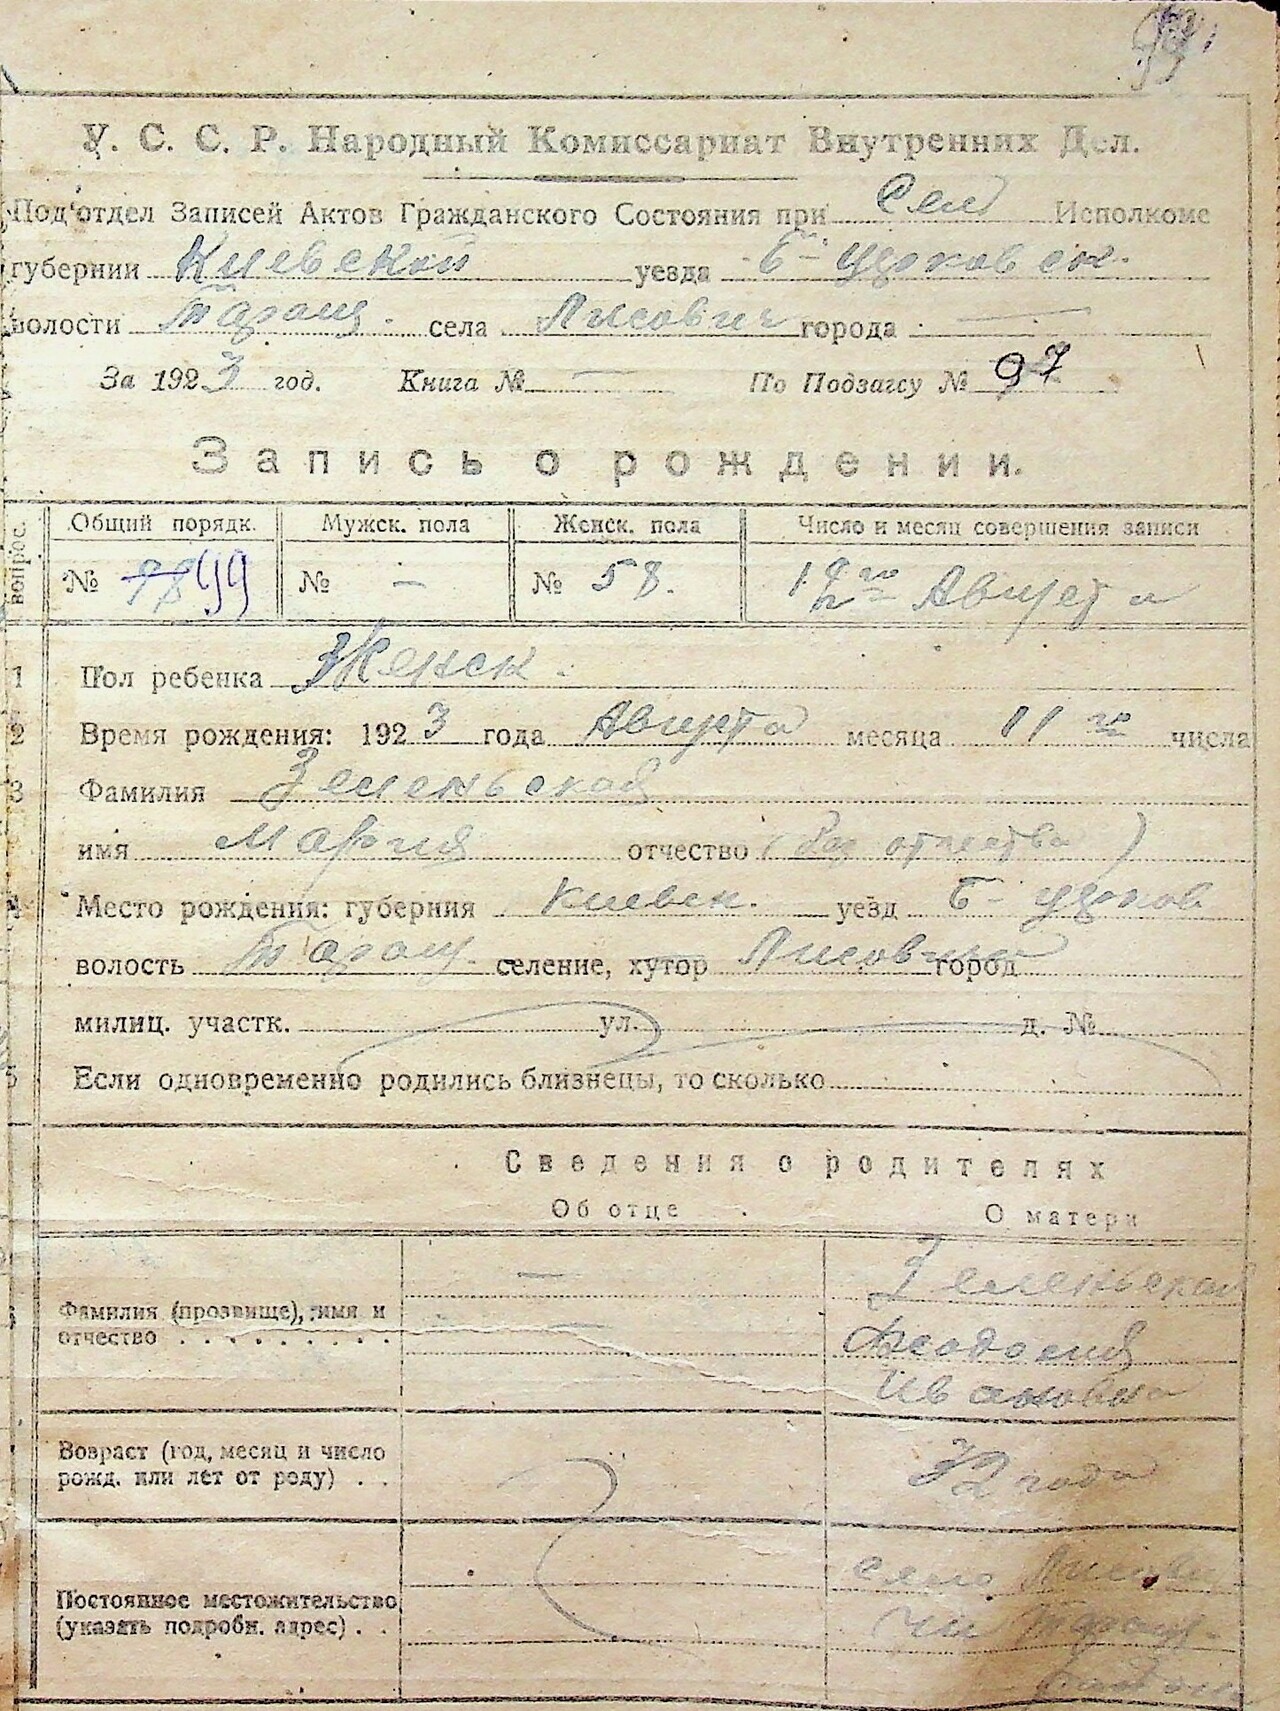 У. С. С. Р. Народный Комиссариат Внутренних Дел.
Под'отдел Записей Актов Гражданского Состояния при Сел Исполкоме
губернии Киевской уезда Б-Церковск.
волости Таращ. села Лисович города —
За 1923 год. Книга № — По Подзагсу № 97
Запись о рождении.
вопрос. Общий порядк. Мужск. пола Женск. пола Число и месяц совершения записи
№ 98 99 № — № 58. Августа
1 Пол ребенка Женск.
2 Время рождения: 1923 года Августа месяца 11го числа
3 Фамилия Зеленьская
имя Мария отчество (без отчества)
4 Место рождения: губерния Киевск. уезд Б-Церков
волость Таращ. селение, хутор Лисовичи город
милиц. участк. ул. д. №
5 Если одновременно родились близнецы, то сколько
Сведения о родителях
Об отце О матери
Фамилия (прозвище), имя и отчество — — Зеленьская
Феодосия
Ивановна
Возраст (год, месяц и число рожд. или лет от роду) 32 года
Постоянное местожительство (указать подробн. адрес) село Лисови-
чи Таращ.